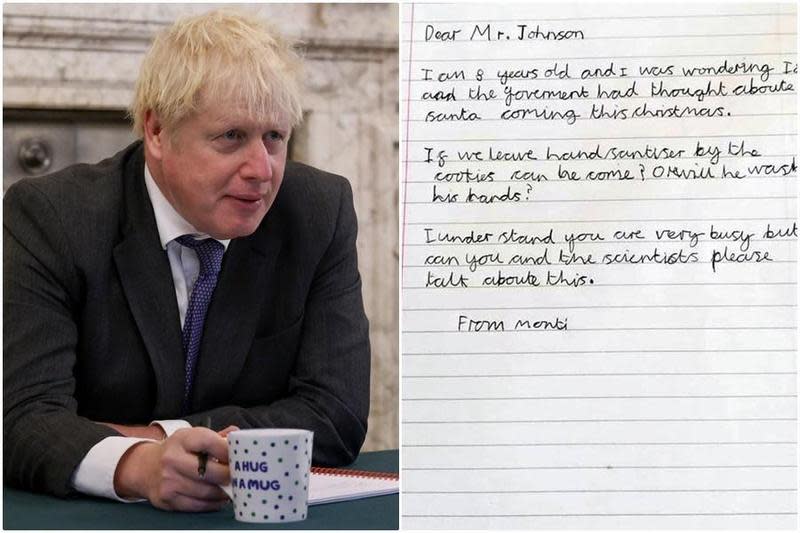 A HUG
A MUG
Dear Mr. Johnson
I am 8 years old and I was wondering
and the goverment had thought aboute
santa coming this christmas.
If we leave hand santiser by the
cookies can he come? Or will he wash
his hands?
I under stand you are very busy but
can you and the scientists please
talk aboute this.
From monti